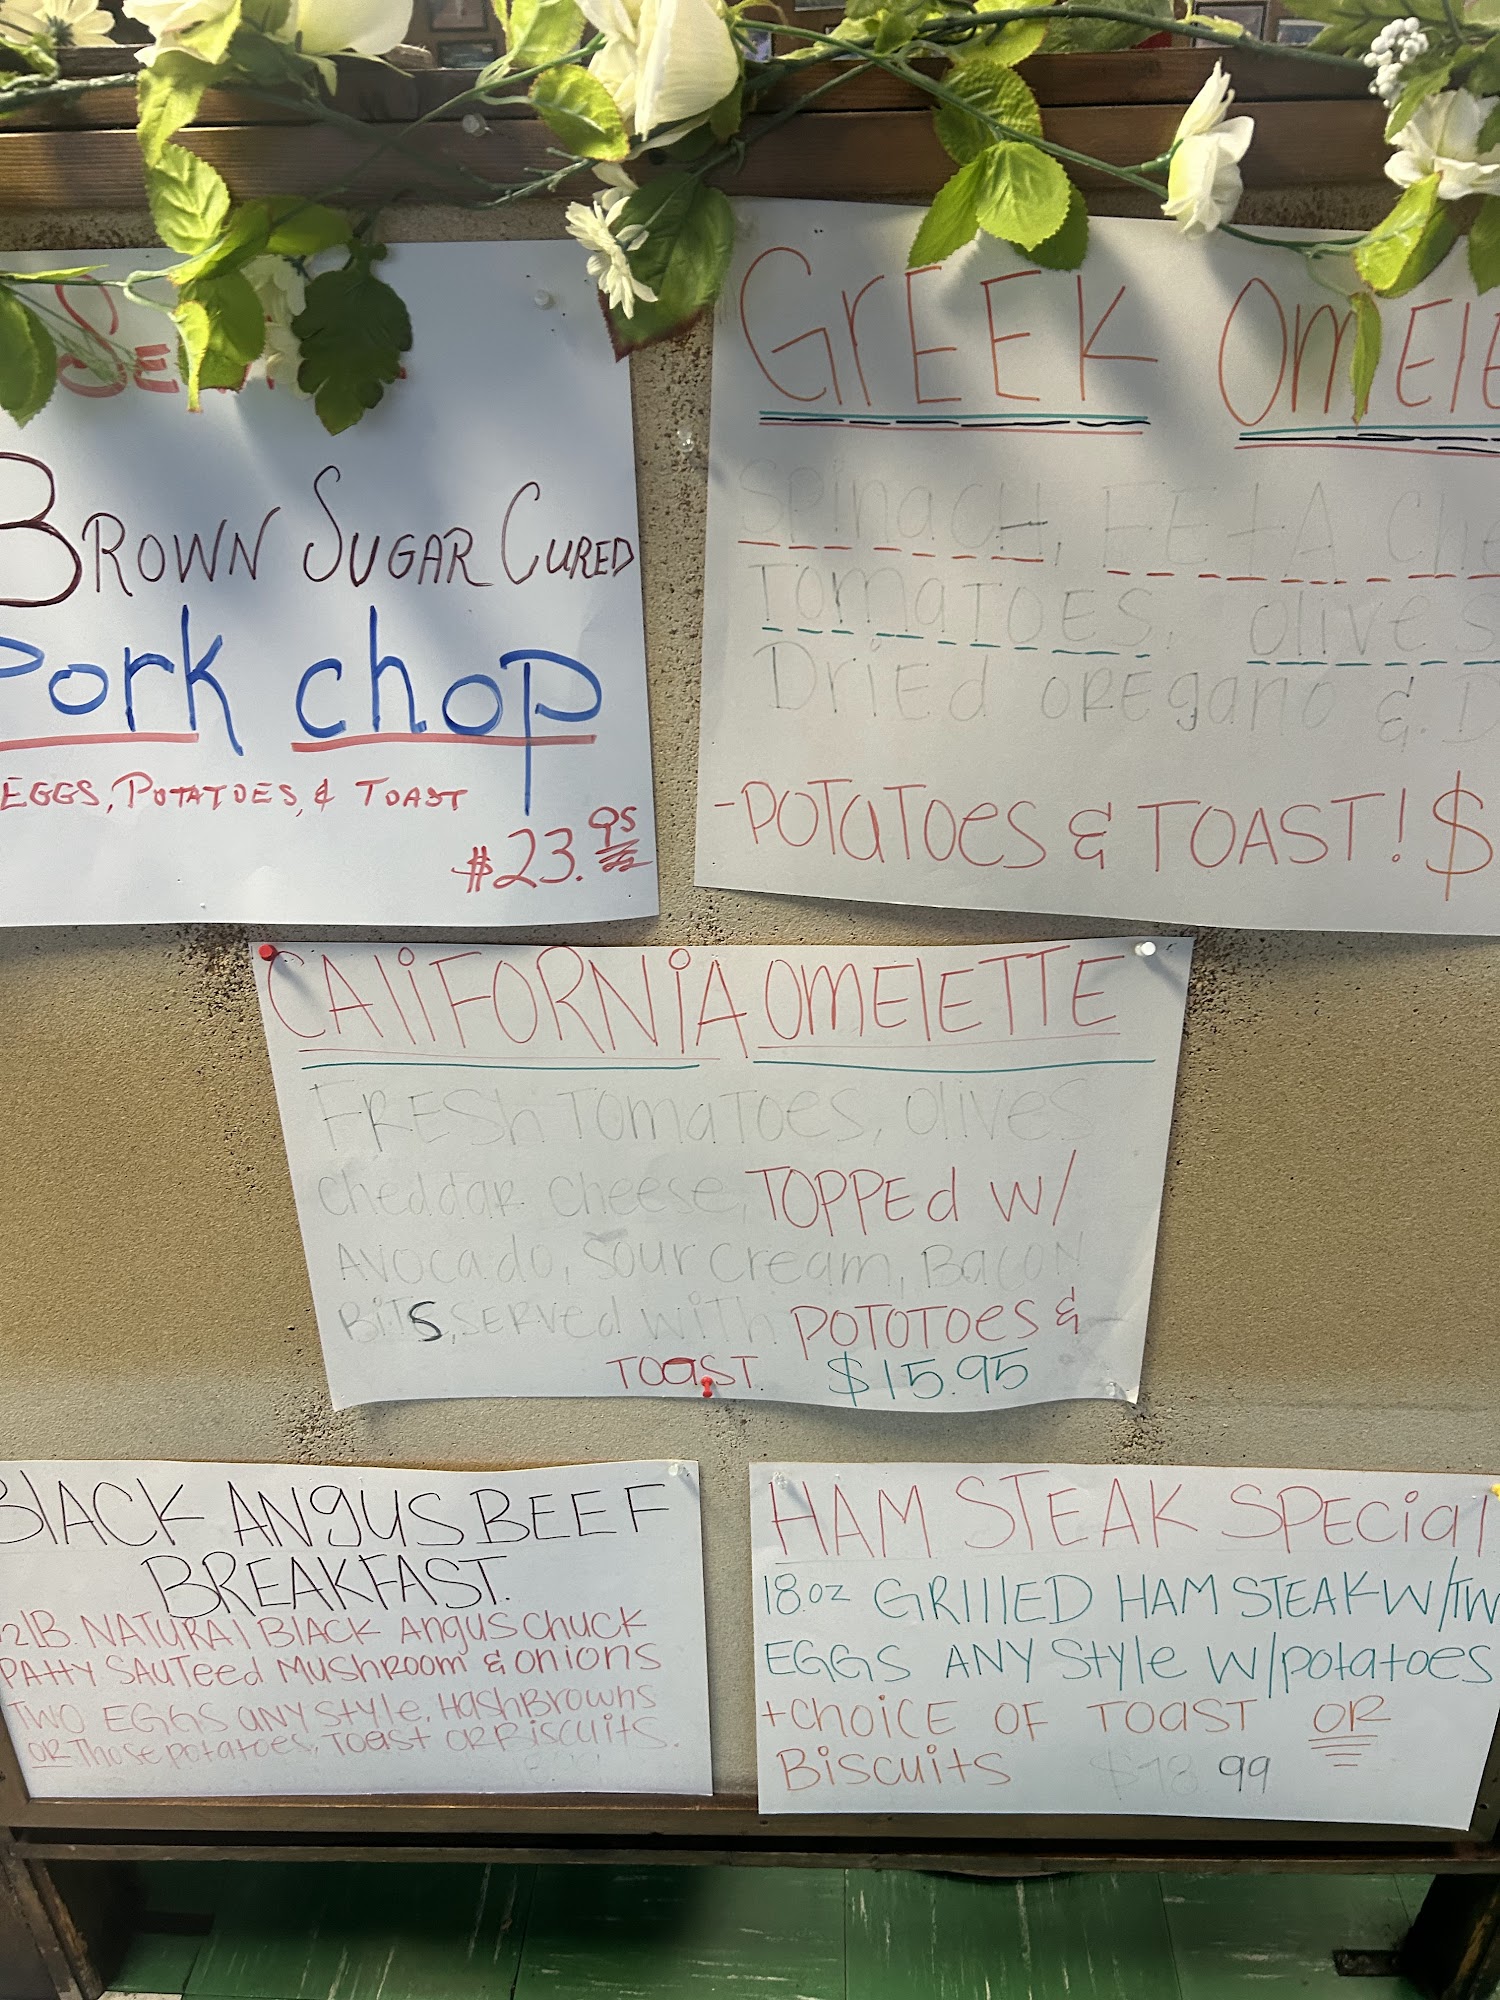 BROWN SUGAR CURED
Pork chop
EGGS, POTATOES, & TOAST
$23.95
GrEEK OmElE
Spinach, FETA Che
Tomatoes, Olives
Dried oregano & D
-POTATOES & TOAST! $
CALIFORNIA OMElETTE
FRESh Tomatoes, Olives
Cheddar Cheese, TOPPEd W/
Avocado, Sour Cream, Bacon
BiTS, SERVEd WiTh POTOTOES &
TOAST. $15.95
BlACK ANgUS BEEF
BREAKFAST.
2lB. NATURAl BlACK Angus Chuck
PATTY SAUTEEd MUShROOM & ONiONS
TWO EGGS ANY STYLE, HAShBROWNS
OR Those potatoes, TOAST OR BiSCUiTS.
HAM STEAK SPECial
18.oz GRIllED HAM STEAK W/TW
EGGS ANY STYlE W/POTATOES
+ChOiCE OF TOAST OR
BiSCUiTS $18.99